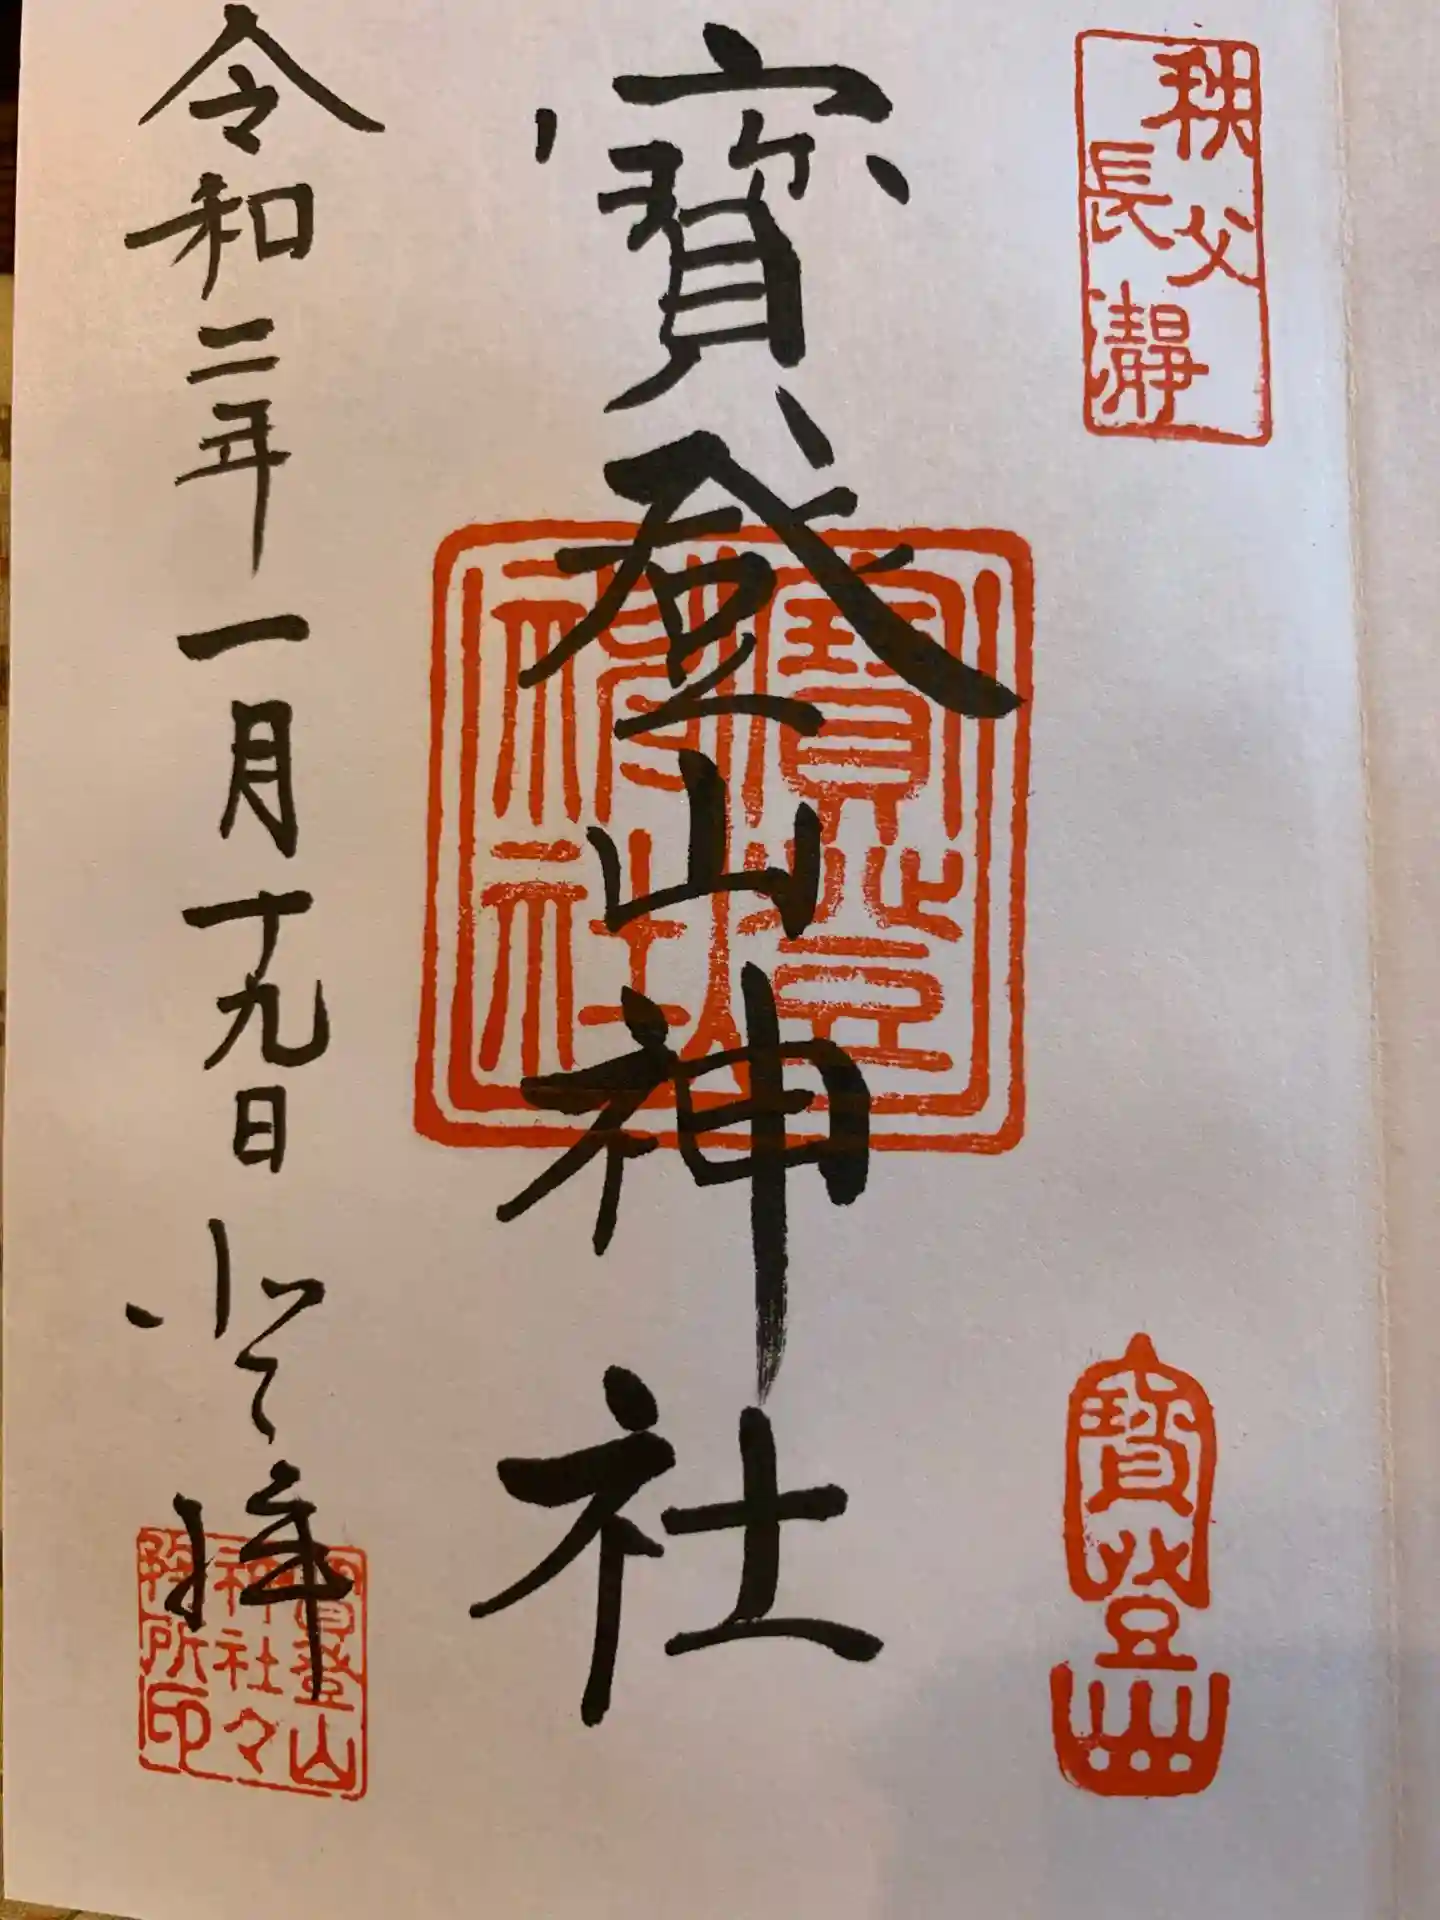 秩父
長瀞
寶登山
寶登山神社
寶登山
神社
令和二年一月十九日登拝
寶登山
神社々
務所印